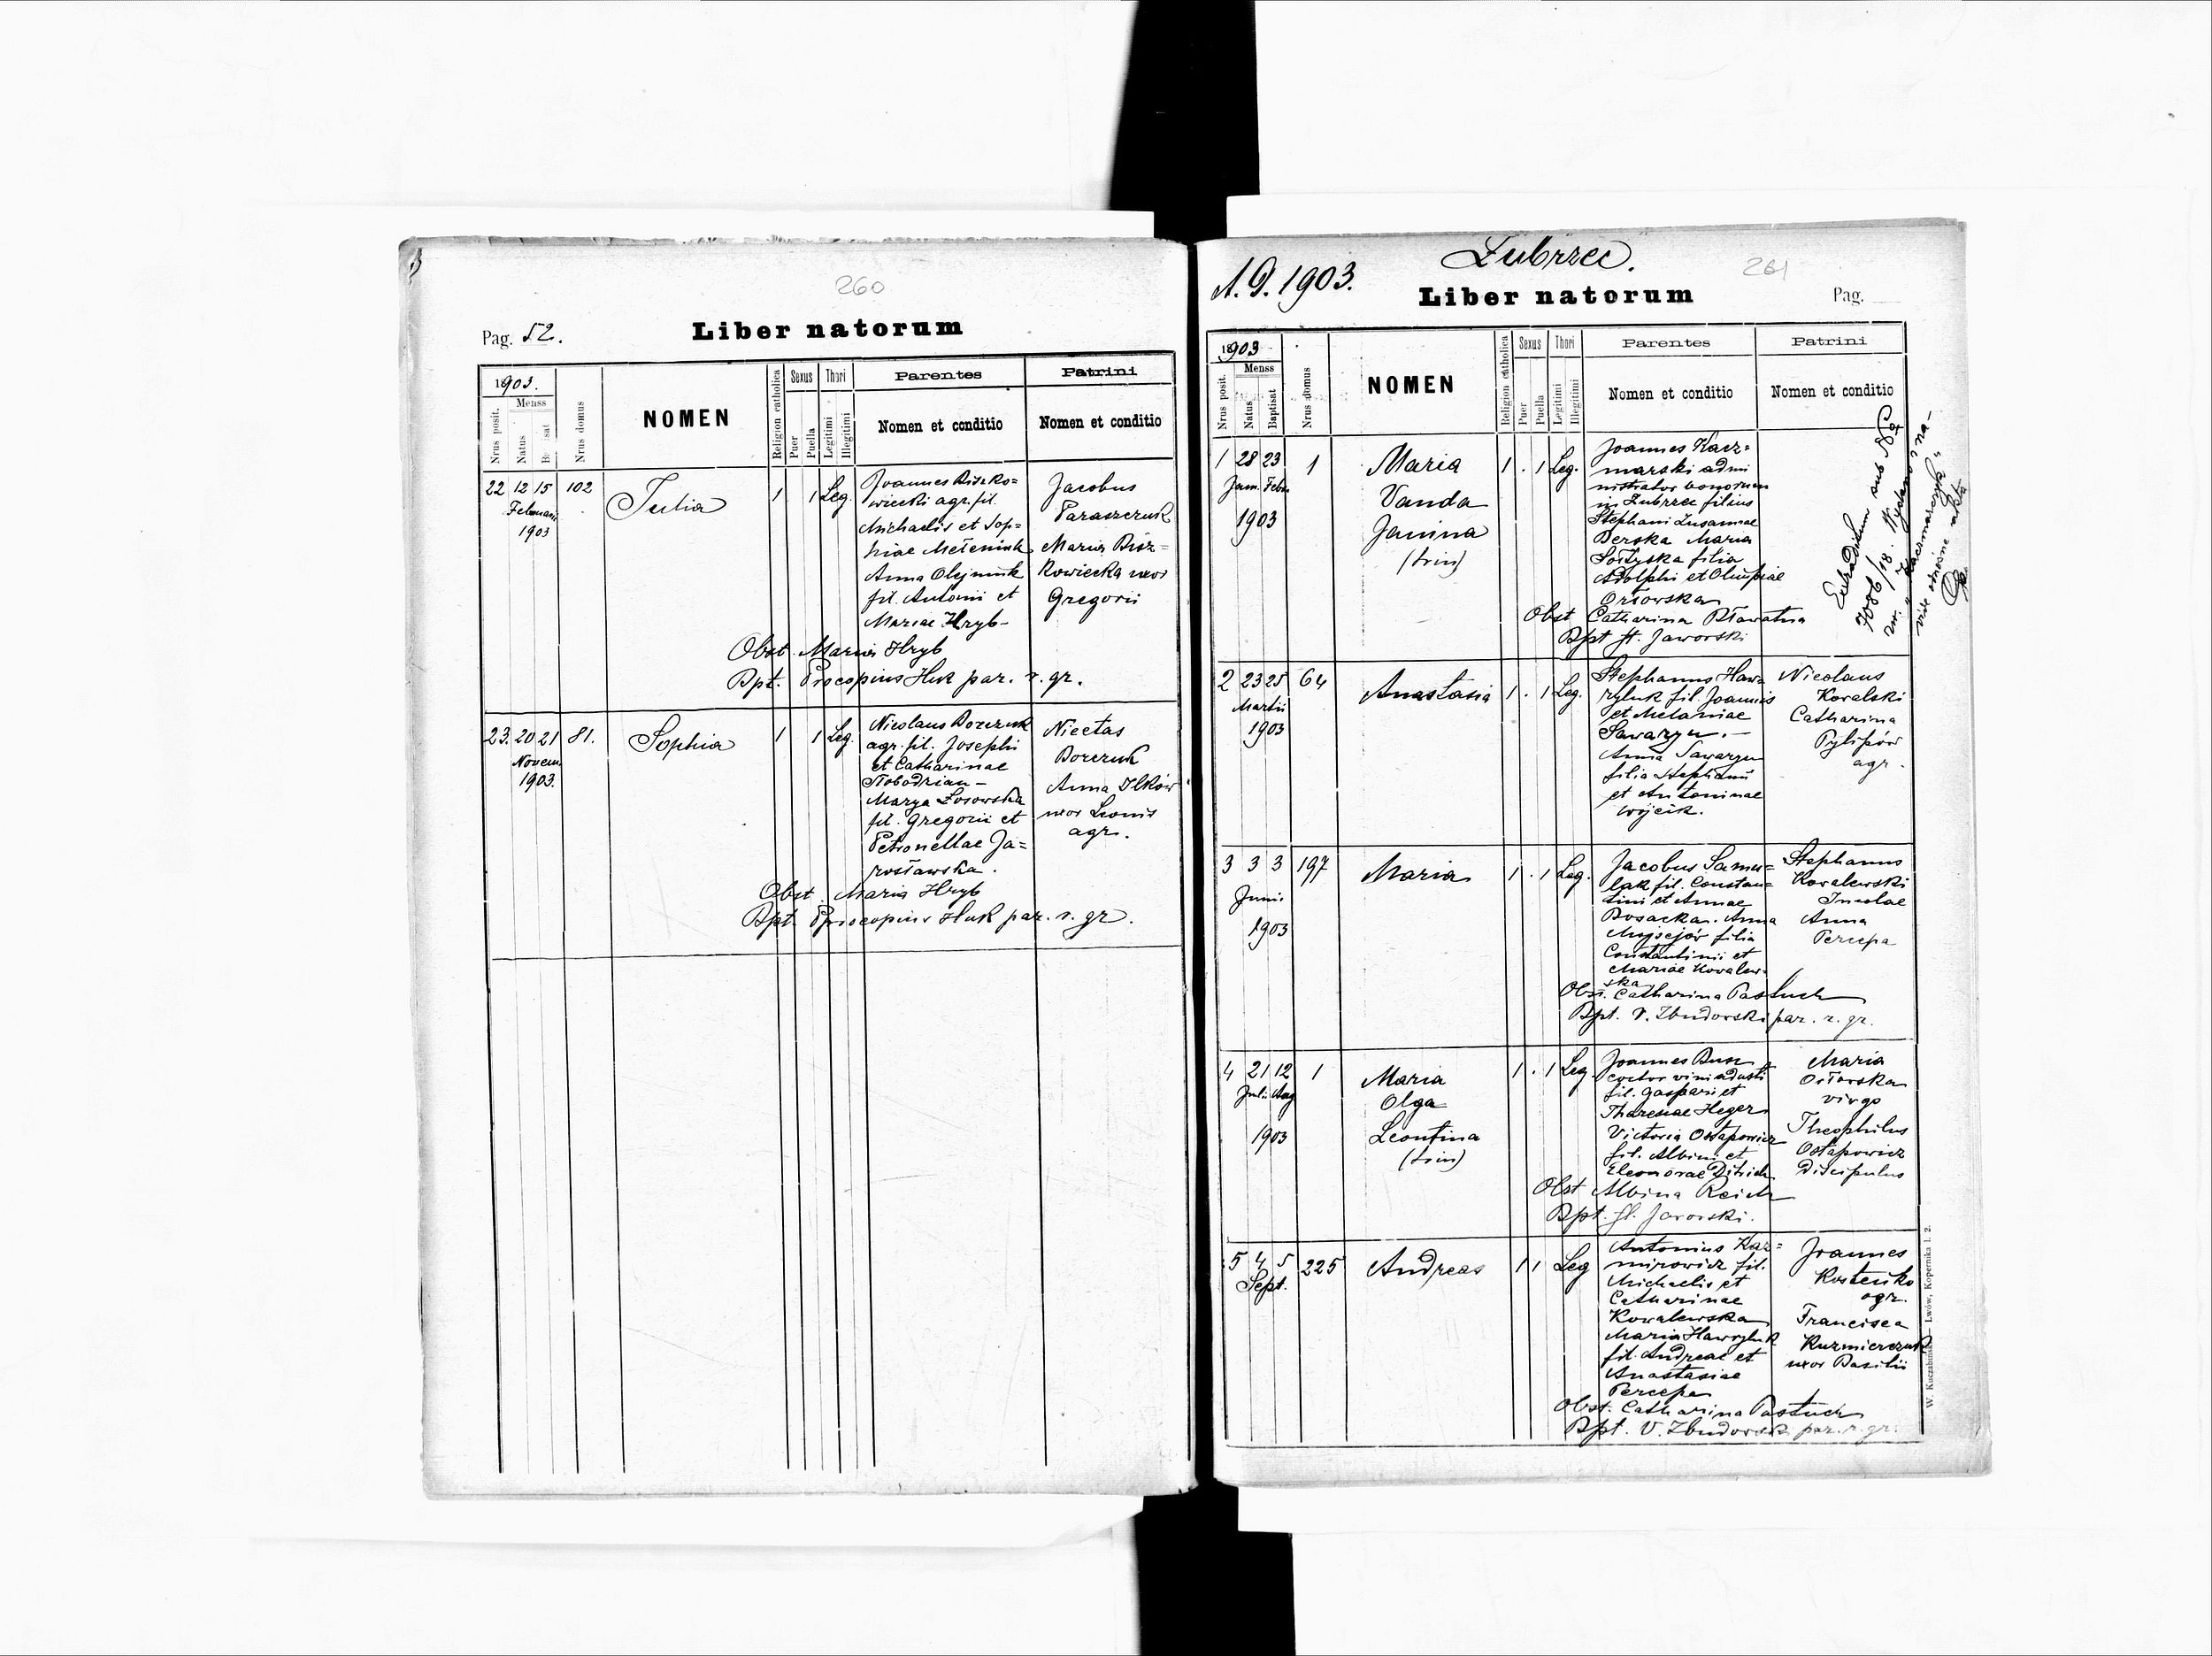 260
Pag. 52.
Liber natorum
1903.
Menss
Nrus posit.
Natus
Nrus domus
NOMEN
Religion catholica
Sexus
Puer
Puella
Thori
Legitimi
Illegitimi
Parentes
Nomen et conditio
Patrini
Nomen et conditio
22 12 15 102
Februarii
1903
Julia
1 1 Leg.
Joannes Biszko=
wiecki agr. fil.
Michaelis et Sop=
hiae
Anna Olejnink
fil. Antonii et
Mariae Hryb-
Jacobus
Paraszczuk
Maria Bisz=
kowiecka uxor
Gregorii
Obst. Maria Hryb
Bpt. Procopius Huk par. r. gr.
23. 20 21 81.
Novem.
1903.
Sophia
1 1 Leg.
Nicolaus Borczuk
agr. fil. Josephi
et Catharinae
Słobodzian -
Marya Łosowska
fil. Gregorii et
Petronellae Ja=
rosławska.
Nicetas
Borczuk
Anna Ilków
uxor Leonis
agr.
Obst. Maria Hryb
Bpt. Procopius Huk par. r. gr.
Zubrzec.
A. D. 1903.
261
Liber natorum
Pag.
1903
Menss
Nrus posit.
Natus
Baptisat
Nrus domus
NOMEN
Religion catholica
Sexus
Puer
Puella
Thori
Legitimi
Illegitimi
Parentes
Nomen et conditio
Patrini
Nomen et conditio
1 28 23 1
Jan. Febr.
1903
Maria
Vanda
Janina
(trin)
1 . 1 Leg.
Joannes Kacz=
marski admi
nistrator bonorum
in Zubrzec filius
Stephani Zusannae
Berska Maria
Sołtyska filia
Adolphi et Olimpiae
Orłowska
Obst Catharina Bławatna
Bpt. Jaworski
Extraditum sub No
7086/18.
2 23 25 64
Martii
1903
Anastasia
1 . 1 Leg.
Stephanus Haw
ryluk fil. Joannis
et Melaniae
Sawaryn. -
Anna Sawaryn
filia Stephani
et Antoninae
Wójcik.
Nicolaus
Kovalski
Catharina
Pylipów
agr.
3 3 3 197
Junii
1903
Maria
1 . 1 Leg.
Jacobus Samu=
lak fil. Constan=
tini et Annae
Bosacka. Anna
Mojsejów filia
Constantinii et
Mariae Kovalew
ska
Stephanus
Kovalewski
Incolae
Anna
Percepa
Obst. Catharina Pastuch
Bpt. V. Zbudovski par. r. gr.
4 21 12 1
Julii Aug
1903
Maria
Olga
Leontina
(trin)
1 . 1 Leg.
Joannes Busz
coctor vini adusti
fil. Gaspari et
Theresiae Heger
Victoria Ostapowicz
fil. Albini et
Eleonorae Ditrich
Maria
Orłovska
virgo
Theophilus
Ostapowicz
discipulus
Obst Albina Reich
Bpt. Javorski.
5 4 5 225
Sept.
Andreas
1 1 Leg
Antonius Kaz=
mirowicz fil.
Michaelis et
Catharinae
Kowalewska
Maria Hawryluk
fil. Andreae et
Anastasiae
Percepa
Joannes
Kostenko
agr.
Francisca
Kuzmierczuk
uxor Basilii
Obst. Catharina Pastuch
Bpt. V. Zbudovski par. r. gr.
W. Kuczabiński — Lwów, Kopernika l. 2.